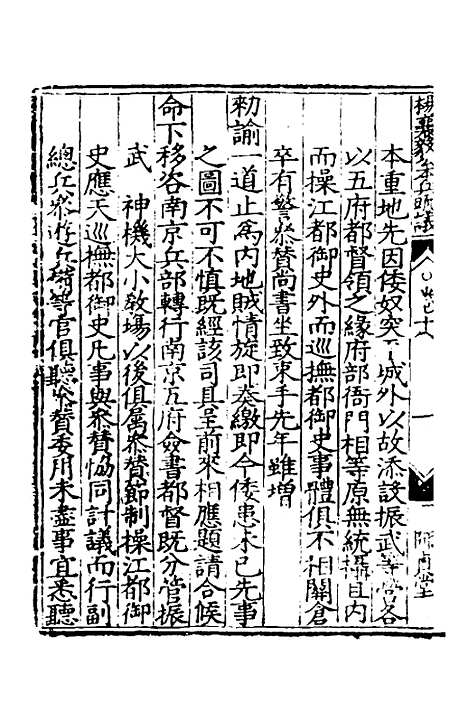 楊襄毅公本兵疏議
師貞堂
本重地先因倭奴突至城外以故添設振武等營各
以五府都督領之緣府部衙門相等原無統攝且內
而操江都御史外而巡撫都御史事體俱不相關倉
卒有警叅贊尚書坐致束手先年雖增
勑諭一道止爲內地賊情旋即奏繳即今倭患未已先事
之圖不可不慎既經該司具呈前來相應題請合候
命下移咨南京兵部轉行南京五府僉書都督既分管振
武 神機大小敎場以後俱屬叅贊節制操江都御
史應天巡撫都御史凡事與叅贊協同計議而行副
總兵叅遊兵備等官俱聽叅贊委用未盡事宜悉聽